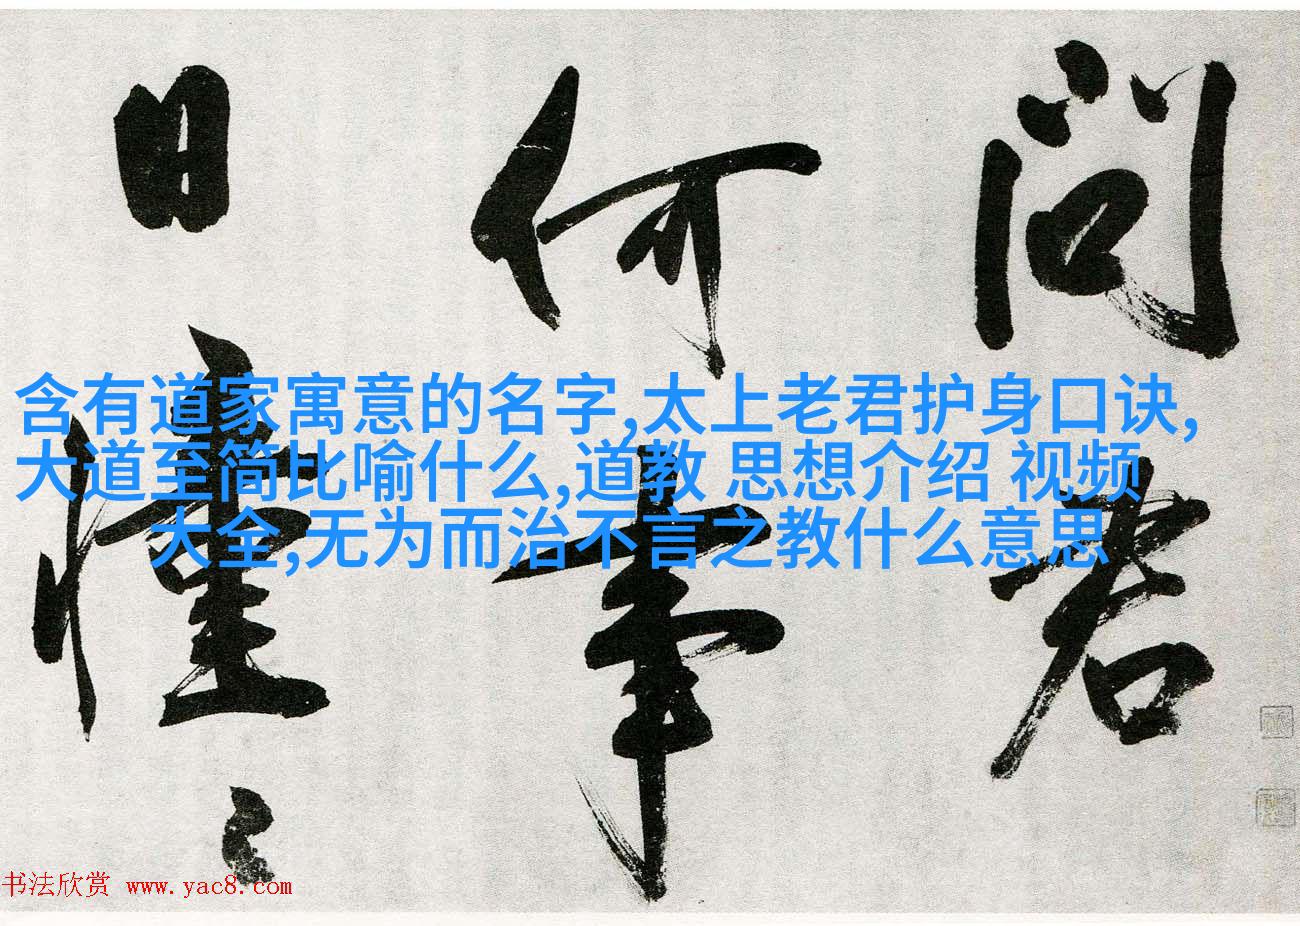 问君
何事
日憧々
含有道家寓意的名字,太上老君护身口诀,
大道至简比喻什么,道教 思想介绍 视频
大全,无为而治不言之教什么意思
书法欣赏 www.yac8.com